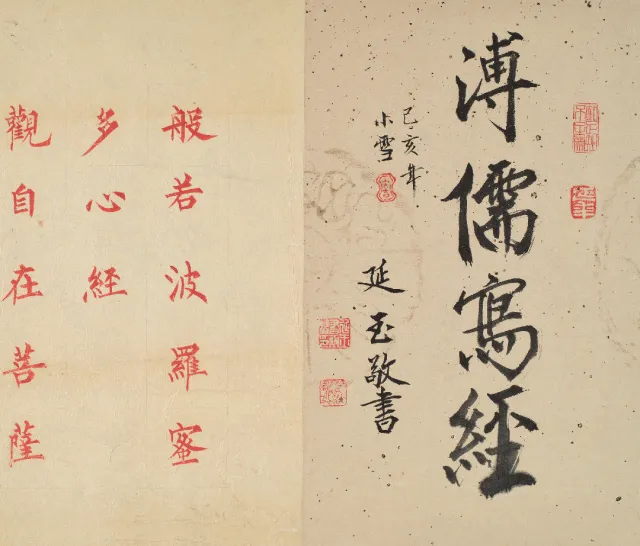 溥儒寫經
己亥年
小雪
延玉敬書
般若波羅蜜
多心経
觀自在菩薩